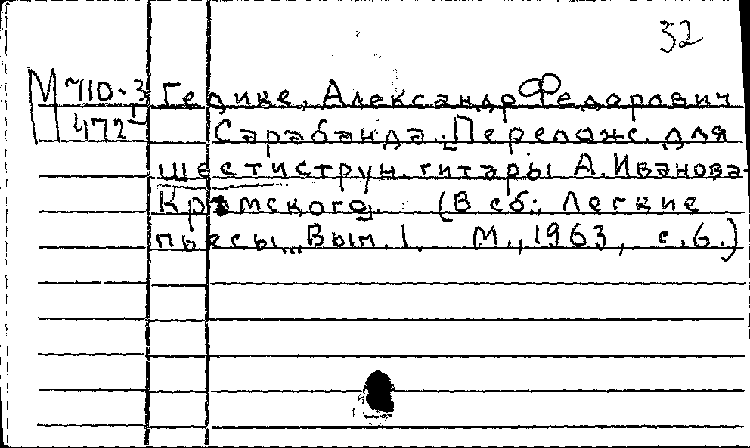 32
М 710-3 Гедике, Александр Федорович
472 I Сарабанда. [Перелож. для
шестиструн. гитары А. Иванова-
Крамского]. (В сб.: Легкие
пьесы. Вып. 1. М., 1963, с. 6.)